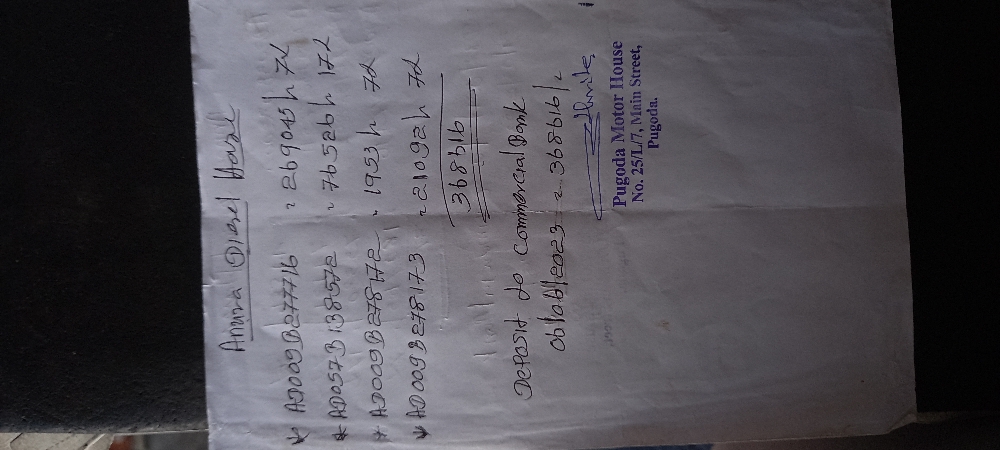 Anura Diesel House
* AD009B277716 = 269045 h 72
* AD057B138572 = 76526 h 172
* AD009B278172 = 1953 h 72
* AD009B278173 = 21092 h 72
368616
Deposit to Commercial Bank
06/06/2023 = 368616/=
Pugoda Motor House
No. 25/L/7, Main Street,
Pugoda.